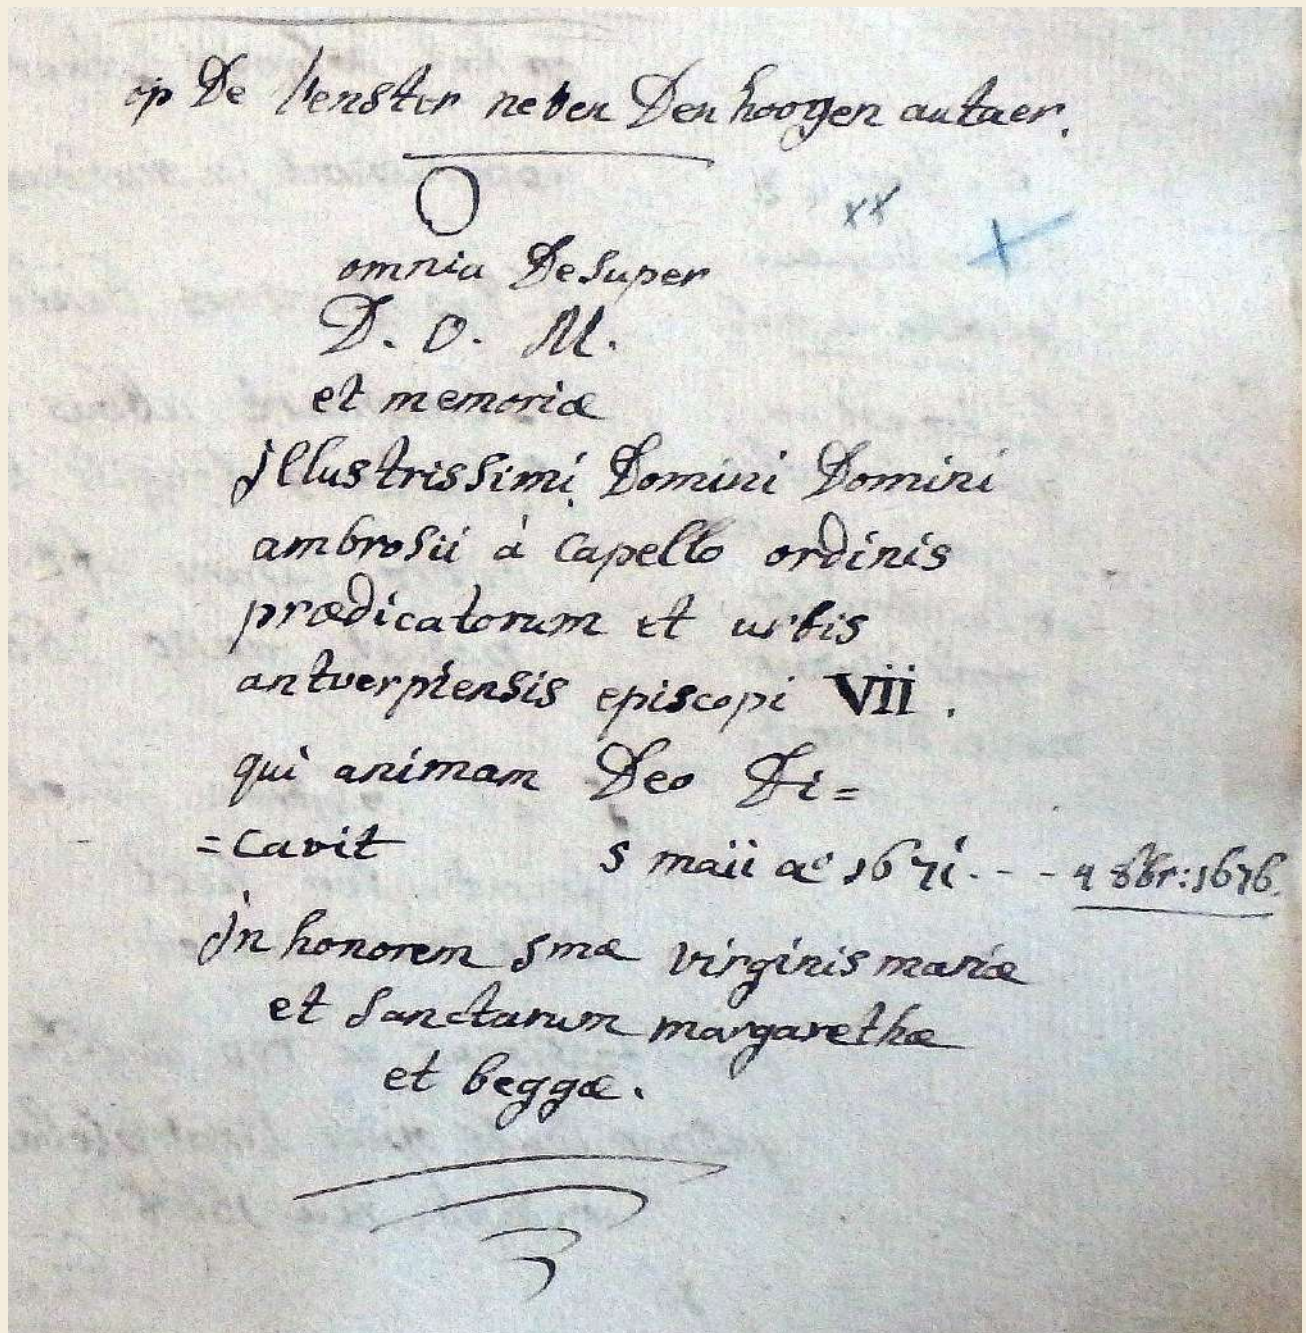 op De venster neven Den hoogen autaer.
O
xx
omnia Desuper
D. O. M.
et memoriæ
jllustrissimi Domini Domini
ambrosii à Capello ordinis
prædicatorum et urbis
antverpiensis episcopi Vii.
qui animam Deo Di=
=cavit 5 maii aº 1671. - - 4 8br: 1676.
jn honorem smæ virginis mariæ
et sanctarum margarethæ
et beggæ.